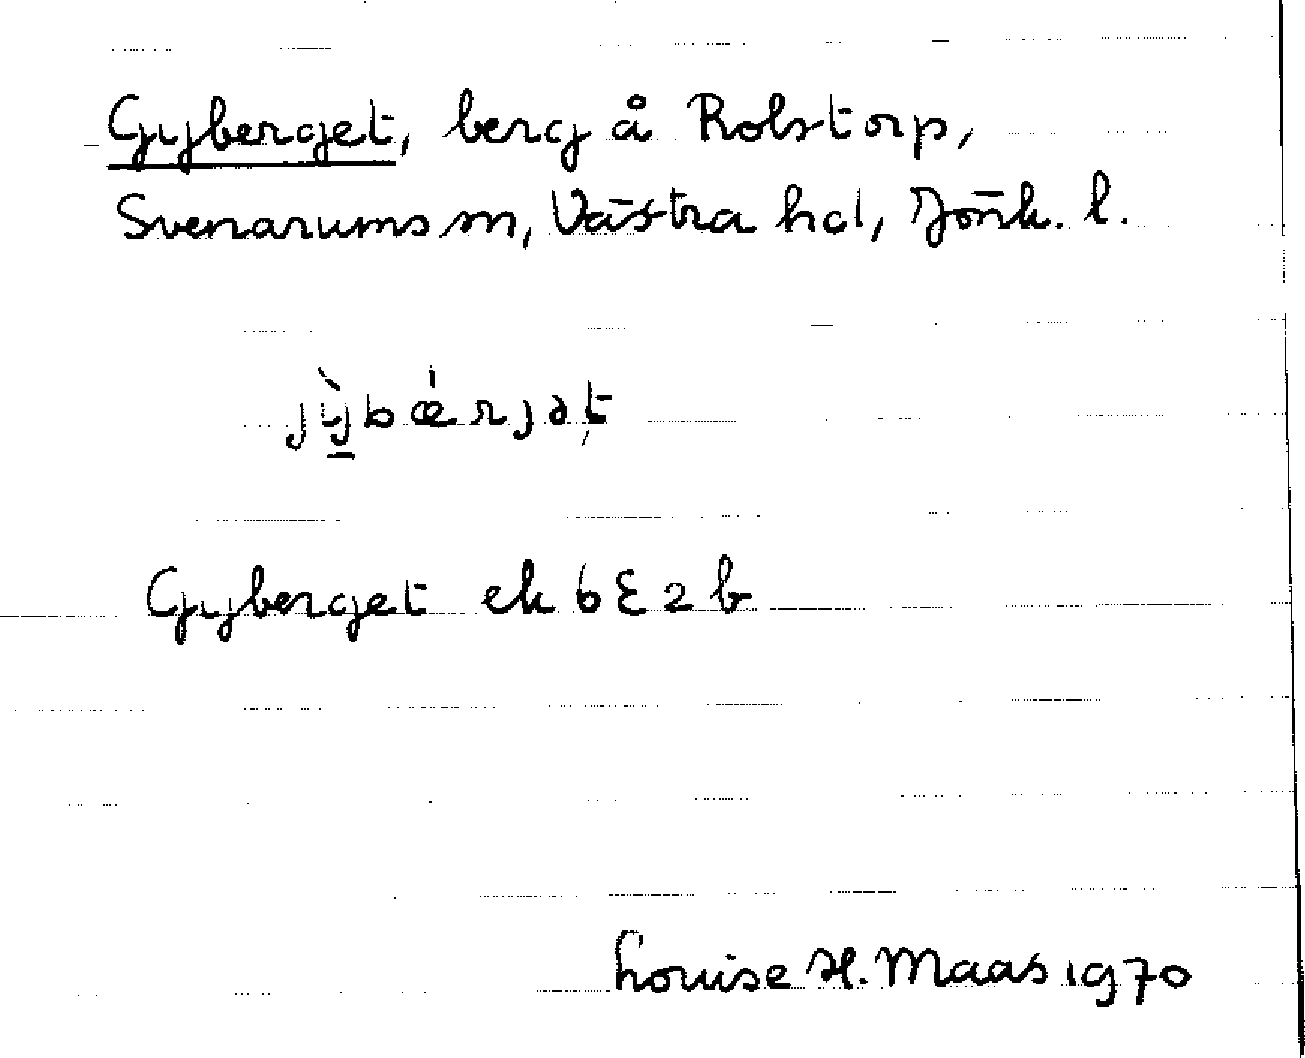 Gyberget, berg å Rolstorp,
Svenarums sn, Västra hd, Jönk. l.
jỳbǽrjət
Gyberget ek 6E2b
Louise H. Maas 1970